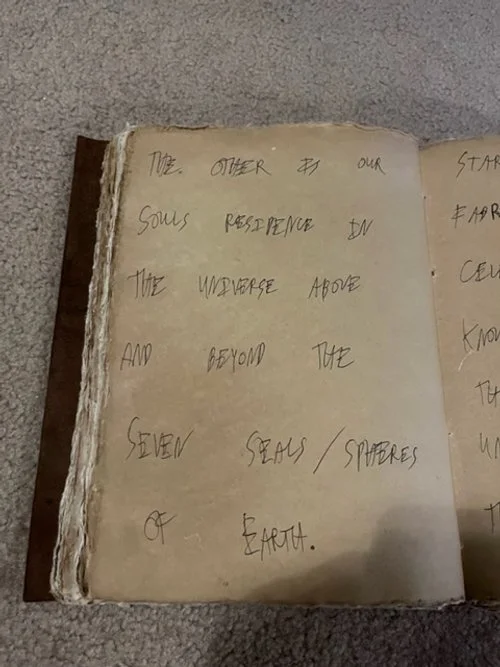 THE. OTHER IS OUR
SOULS RESIDENCE IN
THE UNIVERSE ABOVE
AND BEYOND THE
SEVEN SEALS / SPHERES
OF EARTH.
STAR
FABR
CEL
KNOW
TH
UN
T